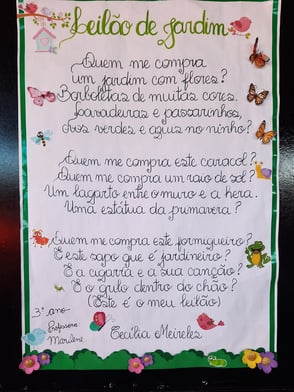 Leilão de Jardim
Quem me compra
um jardim com flores?
Borboletas de muitas cores,
lavadeiras e passarinhos,
ovos verdes e azuis no ninho?
Quem me compra este caracol?
Quem me compra um raio de sol?
Um lagarto entre o muro e a hera,
Uma estátua da primavera?
Quem me compra este formigueiro?
E este sapo que é jardineiro?
E a cigarra e a sua canção?
E o grilo dentro do chão?
(Este é o meu leilão)
3º ano
Professora:
Marilene
Cecília Meireles